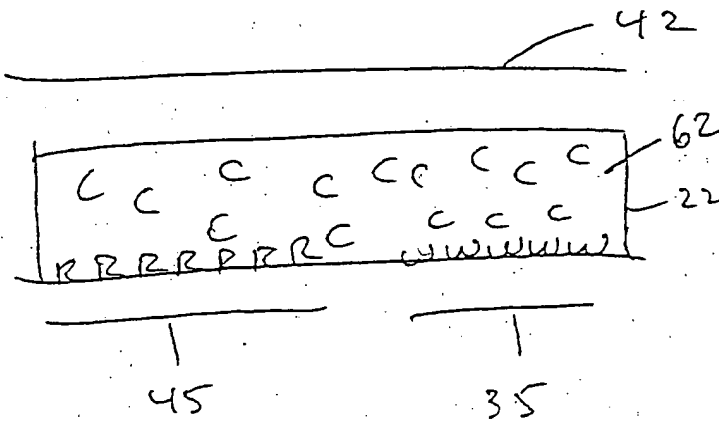 42
62
C C C C C C C C C
22
C C C C C
R R R R R R R W W W W W W
45 35